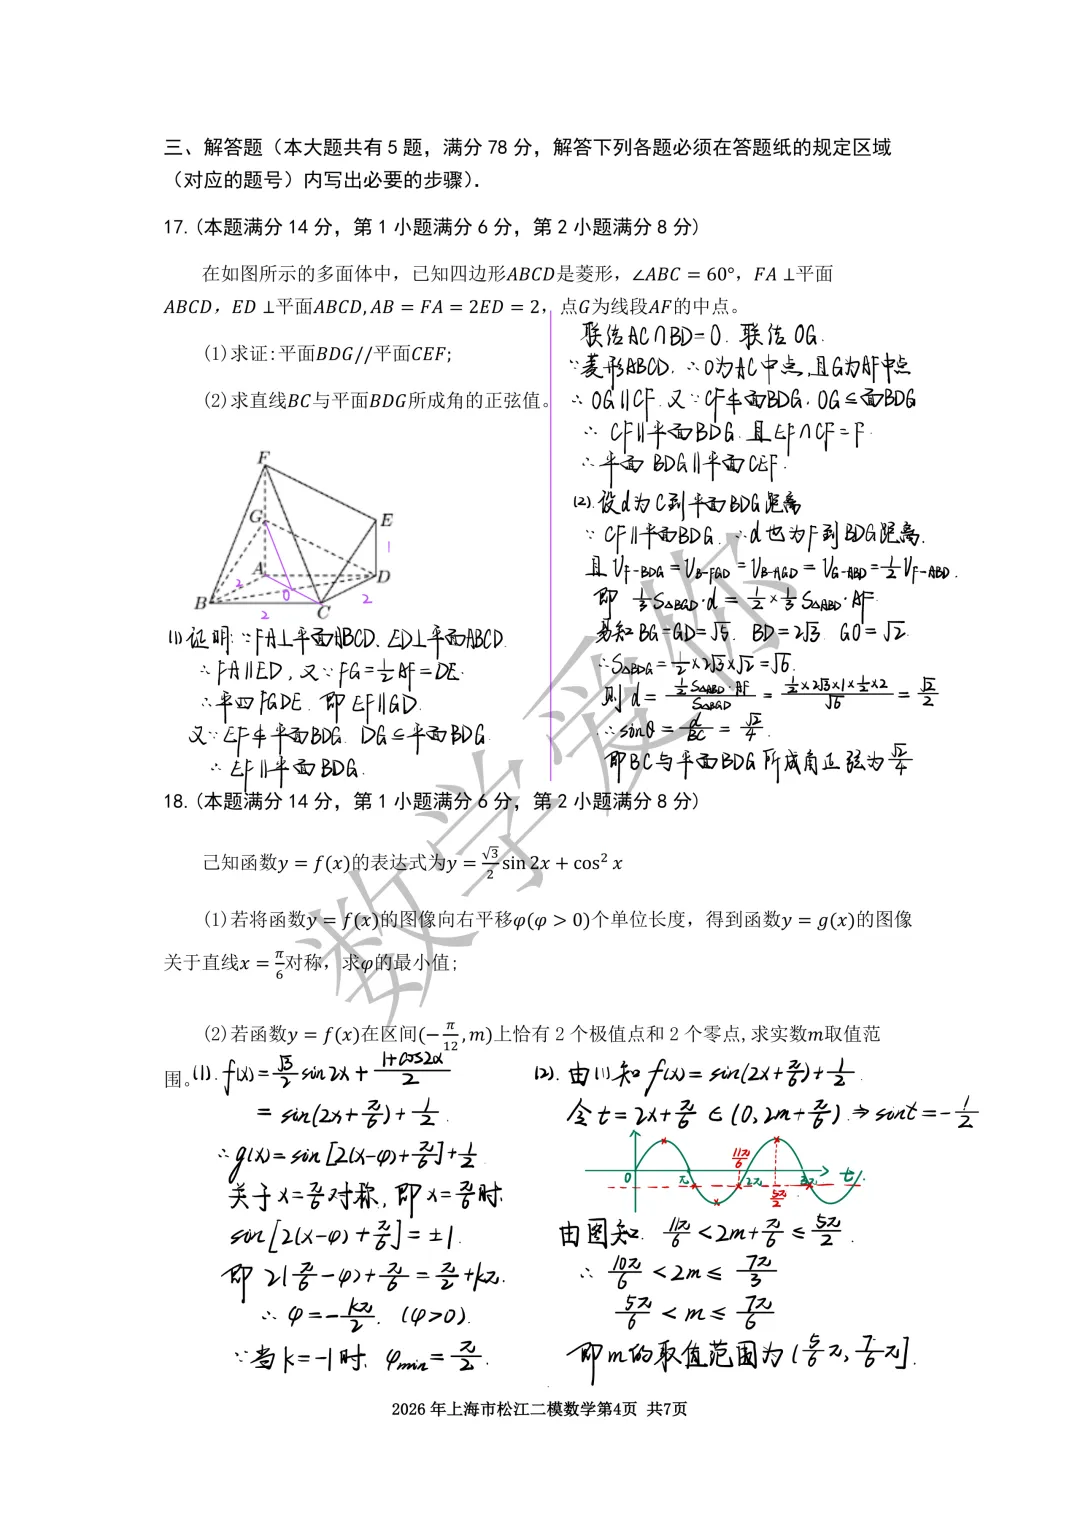 三、解答题（本大题共有5题，满分78分，解答下列各题必须在答题纸的规定区域
（对应的题号）内写出必要的步骤）.
17.(本题满分14分，第1小题满分6分，第2小题满分8分)
在如图所示的多面体中，已知四边形ABCD是菱形，∠ABC = 60°，FA ⊥平面
ABCD，ED ⊥平面ABCD, AB = FA = 2ED = 2，点G为线段AF的中点。
(1)求证:平面BDG//平面CEF;
(2)求直线BC与平面BDG所成角的正弦值。
F
G
E
1
A
D
2
O
2
B
2
C
(1)证明:∵FA⊥平面ABCD、ED⊥平面ABCD.
∴FA∥ED，又∵FG=½AF=DE.
∴平四FGDE. 即EF∥GD.
又∵EF⊄平面BDG. DG⊆平面BDG.
∴EF∥平面BDG.
联结AC∩BD=O. 联结OG.
∵菱形ABCD，∴O为AC中点,且G为AF中点
∴OG∥CF. 又∵CF⊄面BDG, OG⊆面BDG
∴CF∥平面BDG. 且EF∩CF=F.
∴平面BDG∥平面CEF.
(2). 设d为C到平面BDG距离
∵CF∥平面BDG. ∴d也为F到BDG距离.
且V_{F-BDG}=V_{B-FGD}=V_{B-AGD}=V_{G-ABD}=½V_{F-ABD}.
即 ⅓S_{△BGD}·d=½×⅓S_{△ABD}·AF.
易知BG=GD=√5. BD=2√3. GO=√2.
∴S_{△BDG}=½×2√3×√2=√6.
则d=(½S_{△ABD}·AF)/S_{△BGD}=(½×2√3×1×½×2)/√6=√2/2
∴sinθ=d/BC=√2/4.
即BC与平面BDG所成角正弦为√2/4
18.(本题满分14分，第1小题满分6分，第2小题满分8分)
己知函数y = f(x)的表达式为y = √3/2 sin 2x + cos² x
(1)若将函数y = f(x)的图像向右平移φ(φ > 0)个单位长度，得到函数y = g(x)的图像
关于直线x = π/6对称，求φ的最小值;
(2)若函数y = f(x)在区间(−π/12, m)上恰有2个极值点和2个零点,求实数m取值范
围。
(1). f(x)=√3/2 sin2x+(1+cos2x)/2
=sin(2x+π/6)+½.
∴g(x)=sin[2(x-φ)+π/6]+½.
关于x=π/6对称, 即x=π/6时.
sin[2(x-φ)+π/6]=±1.
即 2(π/6-φ)+π/6=π/2+kπ.
∴φ=-kπ/2. (φ>0).
∵当k=-1时, φmin=π/2.
(2). 由(1)知f(x)=sin(2x+π/6)+½.
令t=2x+π/6∈(0, 2m+π/6).⇒sint=-½
0 π 11π/6 2π 5π/2 3π t
由图知. 11π/6<2m+π/6≤5π/2.
∴ 10π/6<2m≤7π/3
5π/6<m≤7π/6
即m的取值范围为(5/6π, 7/6π].
数学爱你
2026年上海市松江二模数学第4页 共7页